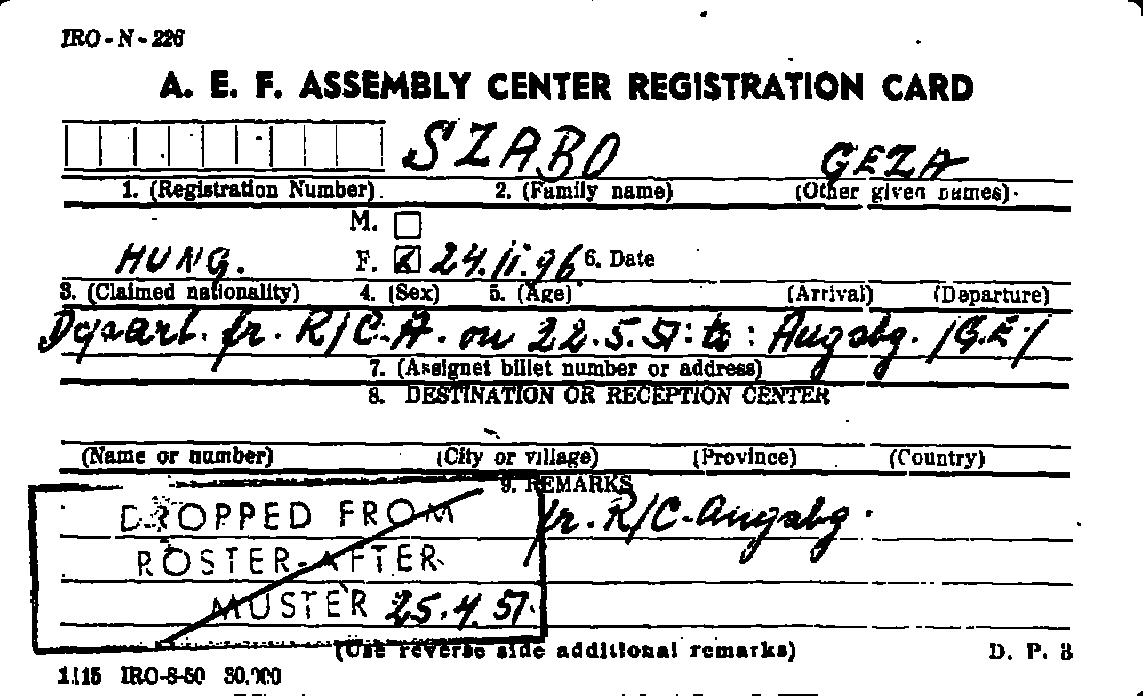 IRO - N - 226
A. E. F. ASSEMBLY CENTER REGISTRATION CARD
SZABO GEZA
1. (Registration Number) 2. (Family name) (Other given names)
M.
HUNG. F. 24.11.96 6. Date
3. (Claimed nationality) 4. (Sex) 5. (Age) (Arrival) (Departure)
Depart. fr. R/C-A. on 22.5.51: to: Augsbg. /G.E/
7. (Assignet billet number or address)
8. DESTINATION OR RECEPTION CENTER
(Name or number) (City or village) (Province) (Country)
9. REMARKS
DROPPED FROM fr. R/C-Augsbg.
ROSTER-AFTER
MUSTER 25.4.51.
(Use reverse side additional remarks) D. P. 3
1115 IRO-8-50 30.000